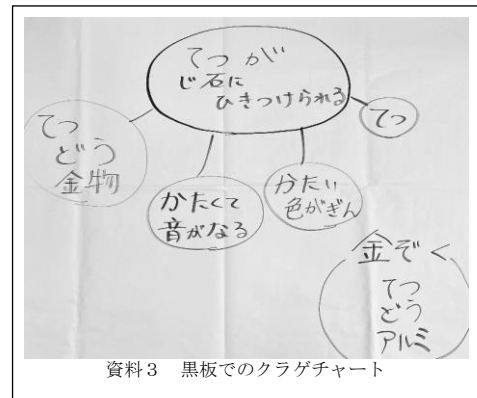 てつが
じ石に
ひきつけられる
てつ
てつ
どう
金物
かたくて
音がなる
かたい
色がぎん
金ぞく
てつ
どう
アルミ
資料3 黒板でのクラゲチャート